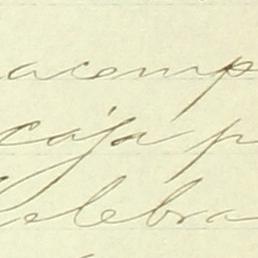 acomp
caja p
Celebra